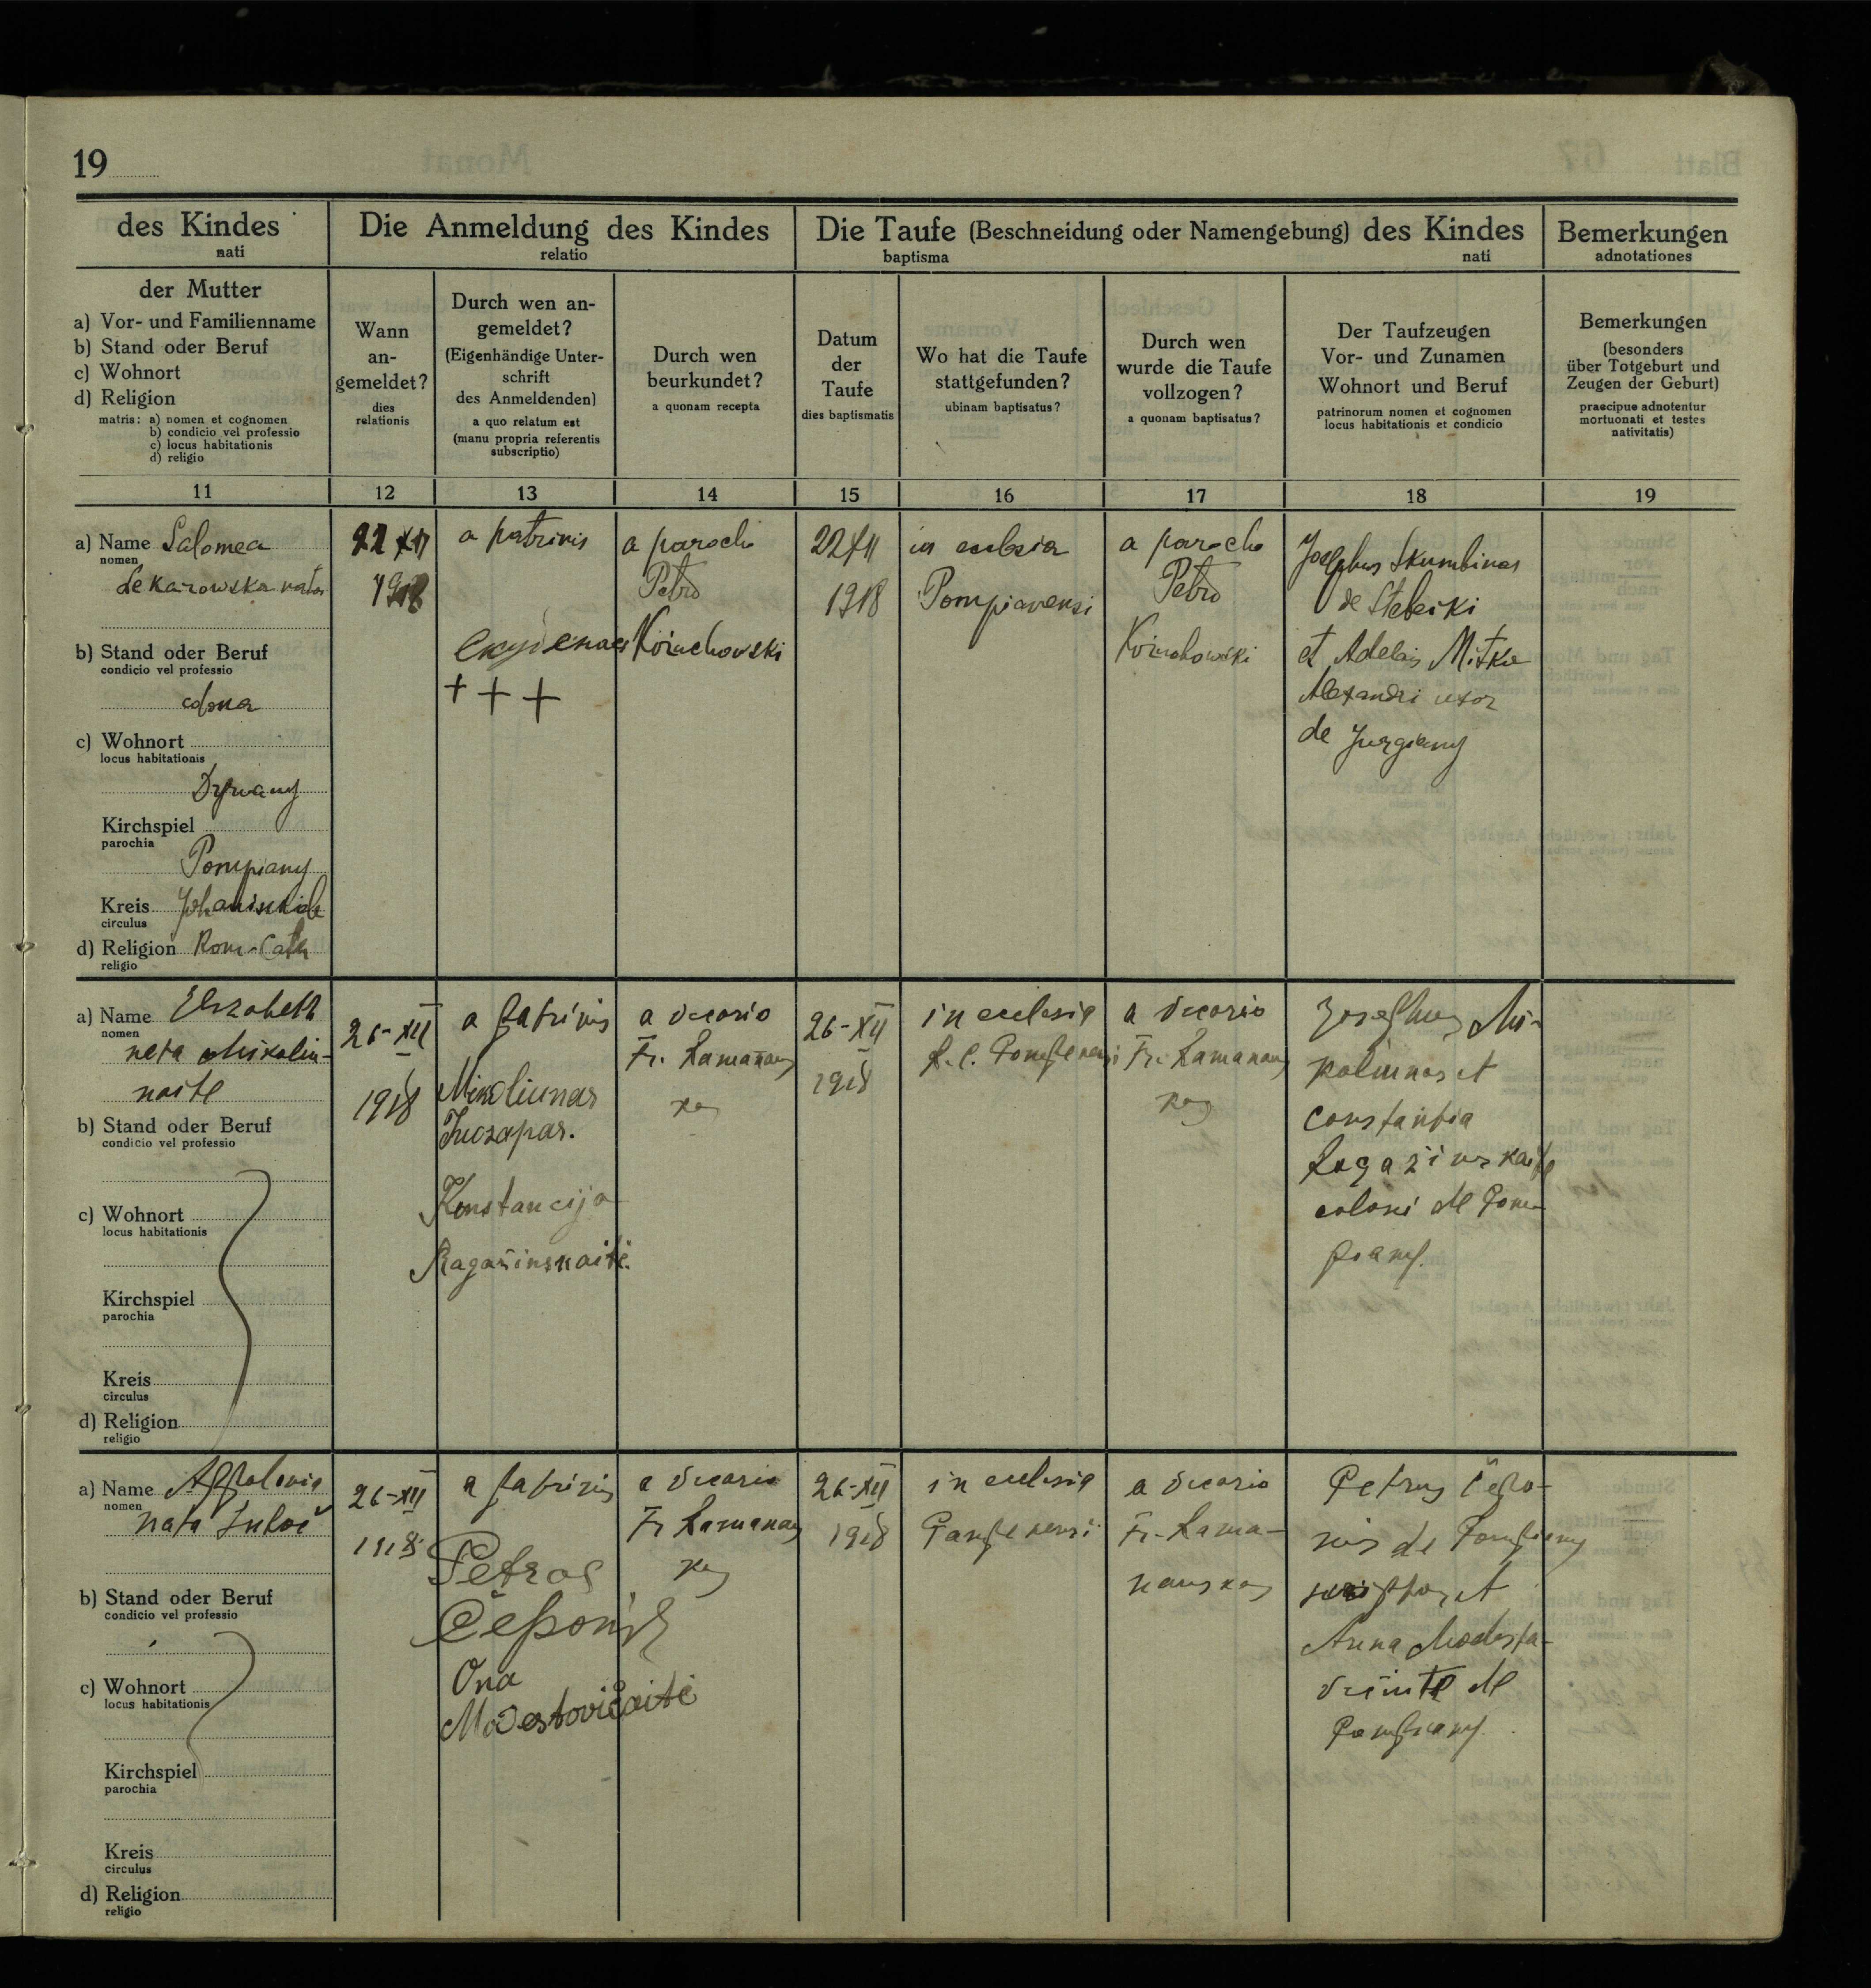 19
des Kindes
nati
Die Anmeldung des Kindes
relatio
Die Taufe (Beschneidung oder Namengebung) des Kindes
baptisma nati
Bemerkungen
adnotationes
der Mutter
a) Vor- und Familienname
b) Stand oder Beruf
c) Wohnort
d) Religion
matris: a) nomen et cognomen
b) condicio vel professio
c) locus habitationis
d) religio
Wann
an-
gemeldet?
dies
relationis
Durch wen an-
gemeldet?
(Eigenhändige Unter-
schrift
des Anmeldenden)
a quo relatum est
(manu propria referentis
subscriptio)
Durch wen
beurkundet?
a quonam recepta
Datum
der
Taufe
dies baptismatis
Wo hat die Taufe
stattgefunden?
ubinam baptisatus?
Durch wen
wurde die Taufe
vollzogen?
a quonam baptisatus?
Der Taufzeugen
Vor- und Zunamen
Wohnort und Beruf
patrinorum nomen et cognomen
locus habitationis et condicio
Bemerkungen
(besonders
über Totgeburt und
Zeugen der Geburt)
praecipue adnotentur
mortuonati et testes
nativitatis)
11 12 13 14 15 16 17 18 19
a) Name Salomea
nomen
b) Stand oder Beruf
condicio vel professio
colona
c) Wohnort
locus habitationis
Drywany
Kirchspiel
parochia
Pompiany
Kreis
circulus
d) Religion Rom-Cath
religio
22 XII
1918
a patrinis
+ + +
a parocho
Petro
22 XII
1918
in ecclesia
Pompianensi
a parocho
Petro
Josephus Skumbinas
et Adelais Mitkie
Alexandri uxor
de Jurgiany
a) Name Elizabeth
nomen
nata Mikoliu-
naite
b) Stand oder Beruf
condicio vel professio
c) Wohnort
locus habitationis
Kirchspiel
parochia
Kreis
circulus
d) Religion
religio
26-XII
1918
a patrinis
Mikoliunas
Juozapas.
Konstancija
Ragažinskaitė.
a vicario
Fr. Ramanaus
kas
26-XII
1918
in ecclesia
r.c. Pompenensi
a vicario
Fr. Ramanaus
kas
Josephus Mi-
koliunas et
Constantia
Ragažinskaite
coloni de Pom-
piany.
a) Name Appolonia
nomen
nata
b) Stand oder Beruf
condicio vel professio
c) Wohnort
locus habitationis
Kirchspiel
parochia
Kreis
circulus
d) Religion
religio
26-XII
1918
a patrinis
Petras
Čeponis
Ona
Modestovičaitė
a vicario
Fr Ramanaus
kas
26-XII
1918
in ecclesia
Pompenensi
a vicario
Fr. Rama-
nauskas
Petrus Čepo-
nis de Pompiany
et
Anna Modesta-
vičiute de
Pompiany.